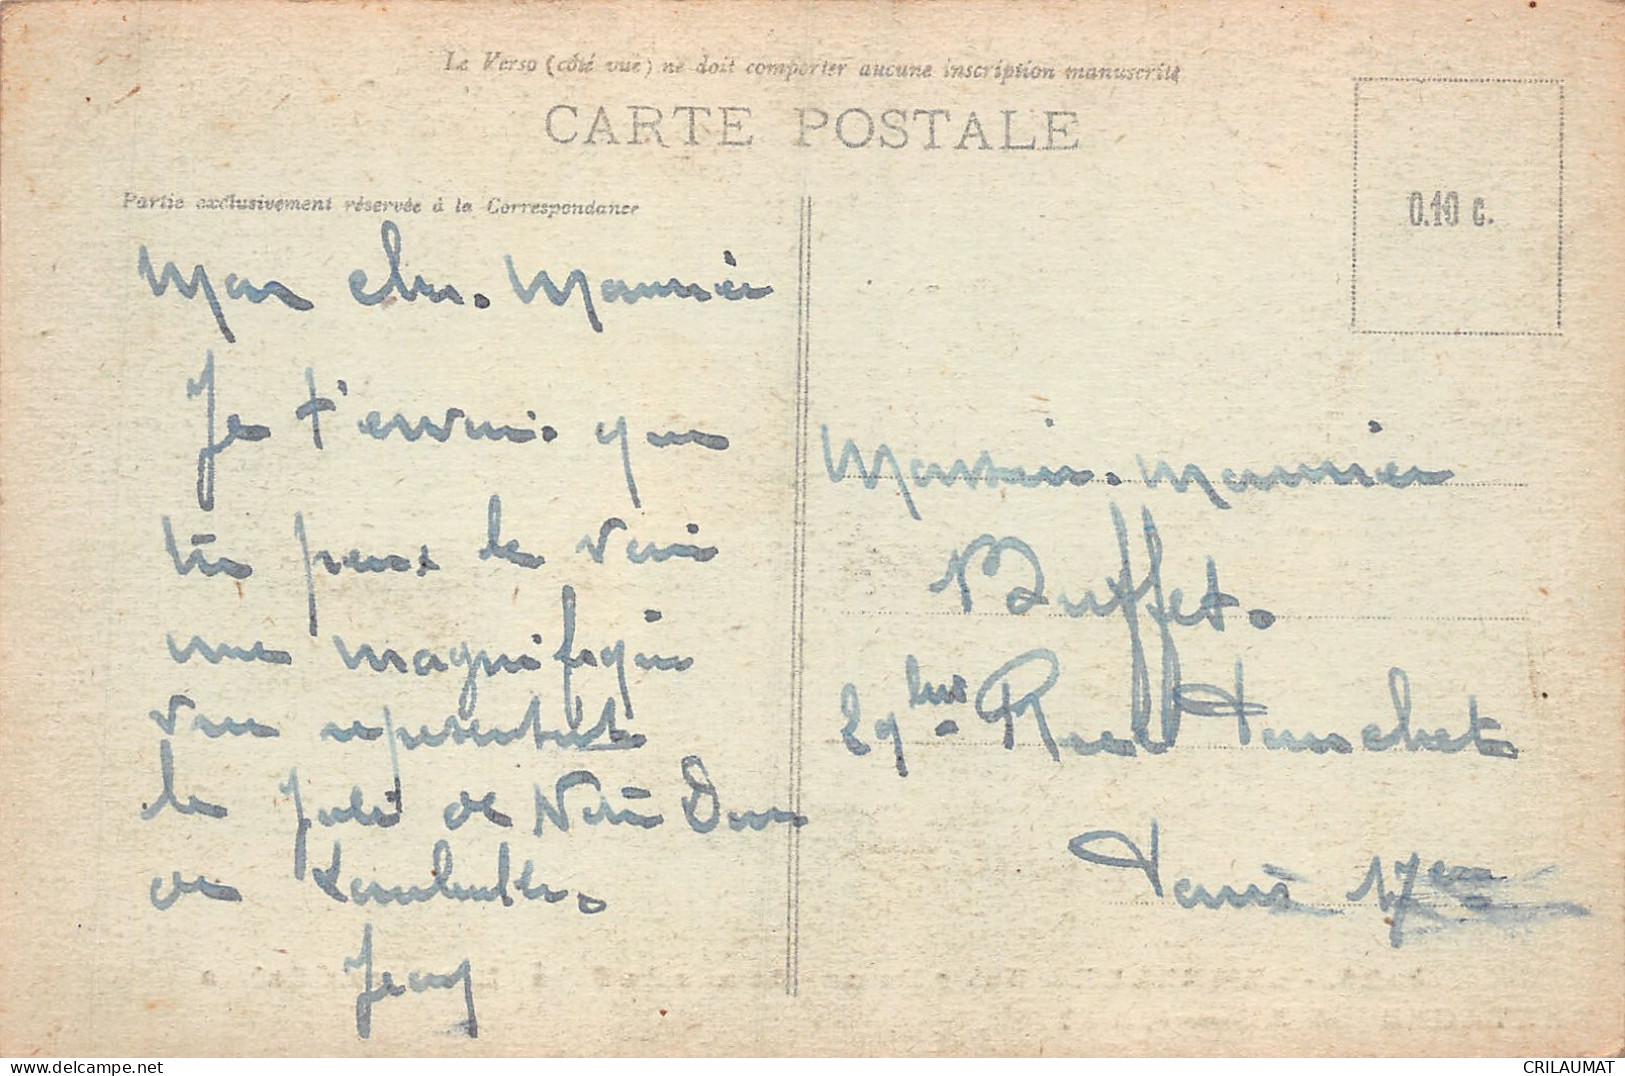 Le Verso (côté vue) ne doit comporter aucune inscription manuscrite
CARTE POSTALE
Partie exclusivement réservée à la Correspondance
0.10 c.
Mon cher. Maurice
Je t'envoi. que
tu peux le voir
une magnifique
vue representant
le de Notre Dame
de Lamballe.
Jean
Maurice
Buffet.
29 bis Rue Pouchet
Paris 17em
delcampe.net
CRILAUMAT